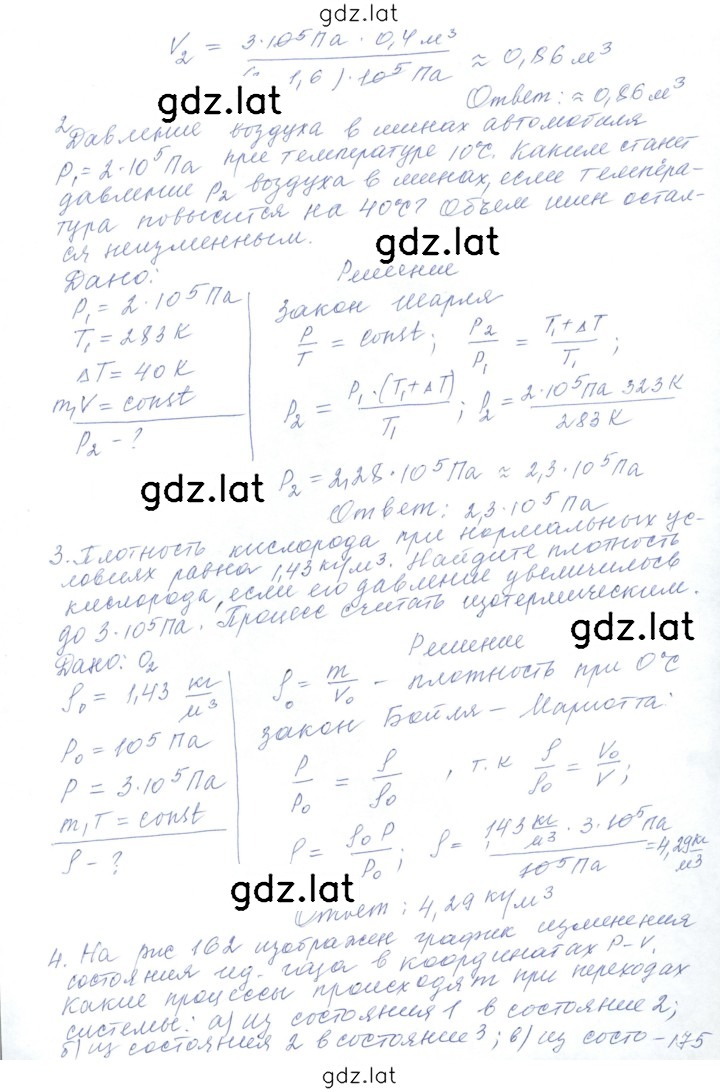 gdz.lat
V₂ = 3·10⁵Па · 0,4м³ / 1,6)·10⁵Па ≈ 0,86м³
gdz.lat
Ответ: ≈ 0,86м³
2 Давление воздуха в шинах автомобиля
P₁ = 2·10⁵Па при температуре 10°С. Каким станет
давление P₂ воздуха в шинах, если темпера-
тура повысится на 40°С? Объем шин остал-
ся неизменным.
gdz.lat
Дано:
P₁ = 2·10⁵Па
T₁ = 283К
ΔT = 40К
m,V = const
P₂ - ?
Решение
Закон Шарля
P/T = const; P₂/P₁ = T₁+ΔT/T₁;
P₂ = P₁·(T₁+ΔT)/T₁; P₂ = 2·10⁵Па 323К/283К
gdz.lat
P₂ = 2,28·10⁵Па ≈ 2,3·10⁵Па
Ответ: 2,3·10⁵Па
3. Плотность кислорода при нормальных ус-
ловиях равна 1,43 кг/м3. Найдите плотность
кислорода, если его давление увеличилось
до 3·10⁵Па. Процесс считать изотермическим.
gdz.lat
Дано: O₂
ρ₀ = 1,43 кг/м³
P₀ = 10⁵Па
P = 3·10⁵Па
m,T = const
ρ - ?
Решение
ρ₀ = m/V₀ - плотность при 0°С
закон Бойля - Мариотта:
P/P₀ = ρ/ρ₀, т.к ρ/ρ₀ = V₀/V;
ρ = ρ₀P/P₀; ρ = 1,43 кг/м³ · 3·10⁵Па / 10⁵Па = 4,29 кг/м³
gdz.lat
Ответ: 4,29 кг/м³
4. На рис 162 изображен график изменения
состояния ид. газа в координатах P-V.
Какие процессы происходят при переходах
системы: а) из состояния 1 в состояние 2;
б) из состояния 2 в состояние 3; в) из состо -175
gdz.lat